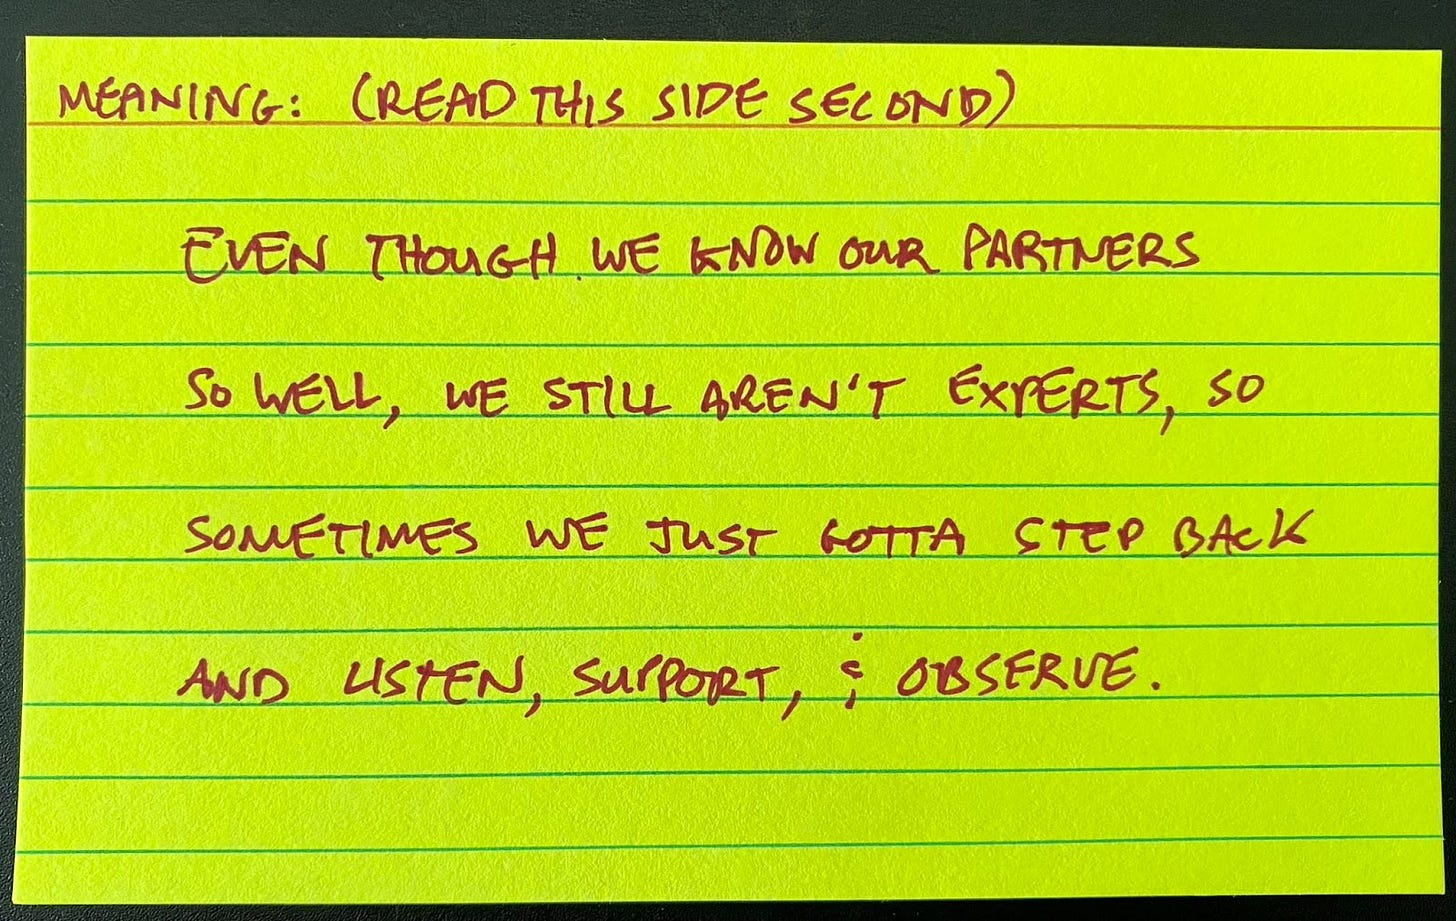 MEANING: (READ THIS SIDE SECOND)
EVEN THOUGH WE KNOW OUR PARTNERS
SO WELL, WE STILL AREN'T EXPERTS, SO
SOMETIMES WE JUST GOTTA STEP BACK
AND LISTEN, SUPPORT, & OBSERVE.